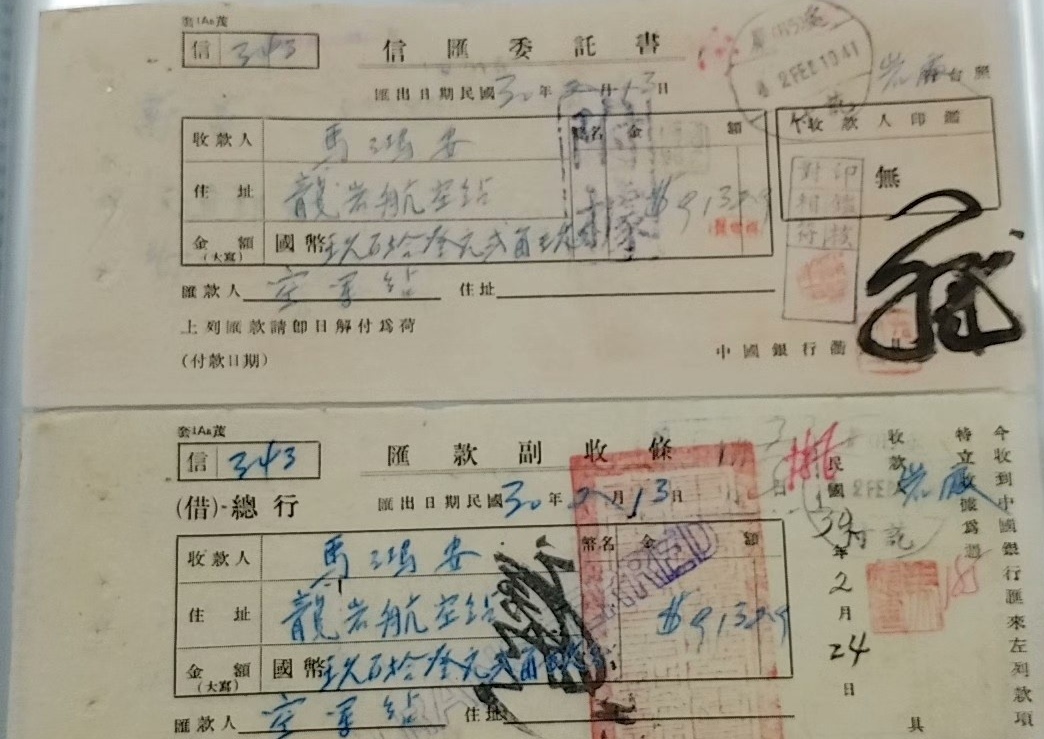 套1A8茂
信 343
信匯委託書
匯出日期民國30年2月13日
岩廠台照
2 FEB 1941
收款人 馬鴻安
幣名 金額
收款人印鑑
無
住址 龍岩航空站
$913.29
對印相鑑符核
金額(大寫) 國幣玖百拾叁元弍角玖分
匯款人 空軍站 住址
上列匯款請卽日解付爲荷
(付款日期)
中國銀行
套1A8茂
信 343
匯款副收條
(借)-總行
匯出日期民國30年2月13日
收款人 馬鴻安
幣名 金額
住址 龍岩航空站
$913.29
金額(大寫) 國幣玖百拾叁元弍角玖分
匯款人 空軍站 住址
今收到中國銀行匯來左列款項
特立收據爲憑
收款人 岩廠 具
民國30年2月24日